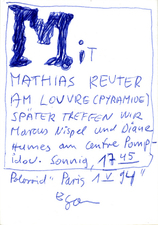 MiT
MATHIAS REUTER
AM LOUVRE (PYRAMIDE)
SPÄTER TREFFEN WIR
Marcus Nispel und Diane
Humes am Centre Pomp-
idou. Sonnig, 17 45
Polaroid "Paris 1 V 94"